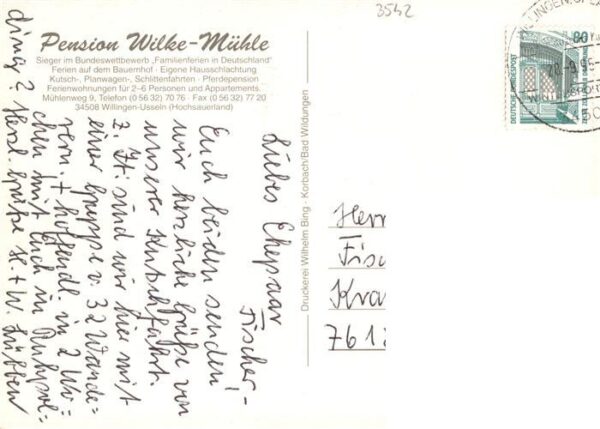 3542
Pension Wilke-Mühle
Sieger im Bundeswettbewerb „Familienferien in Deutschland"
Ferien auf dem Bauernhof · Eigene Hausschlachtung
Kutsch-, Planwagen-, Schlittenfahrten · Pferdepension
Ferienwohnungen für 2–6 Personen und Appartements.
Mühlenweg 9, Telefon (0 56 32) 70 76 · Fax (0 56 32) 77 20
34508 Willingen-Usseln (Hochsauerland)
Liebes Ehepaar
Fischer-
Euch beiden senden
wir herzliche Grüße von
unserer Kutschfahrt.
Z. Zt. sind wir hier mit
einer Gruppe v. 32 Wande=
rern + hoffendl. in 2 Wo=
chen mit Euch in Ruhpol=
ding? Herzl. Grüße H. + W. Lübben
Druckerei Wilhelm Bing · Korbach/Bad Wildungen
80
DEUTSCHE BUNDESPOST
Herrn
Fisc
Kra
761